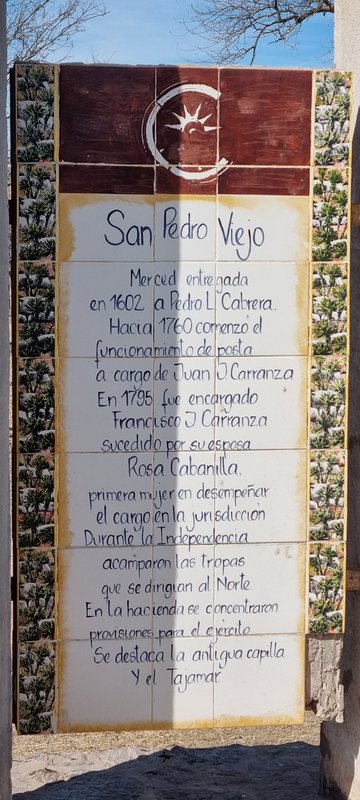 San Pedro Viejo
Merced entregada
en 1602 a Pedro L Cabrera.
Hacia 1760 comenzó el
funcionamiento de posta
a cargo de Juan J Carranza
En 1795 fue encargado
Francisco J Carranza
sucedido por su esposa
Rosa Cabanilla,
primera mujer en desempeñar
el cargo en la jurisdiccion
Durante la Independencia
acamparon las tropas
que se dirigian al Norte
En la hacienda se concentraron
provisiones para el ejército
Se destaca la antigua capilla
Y el Tajamar